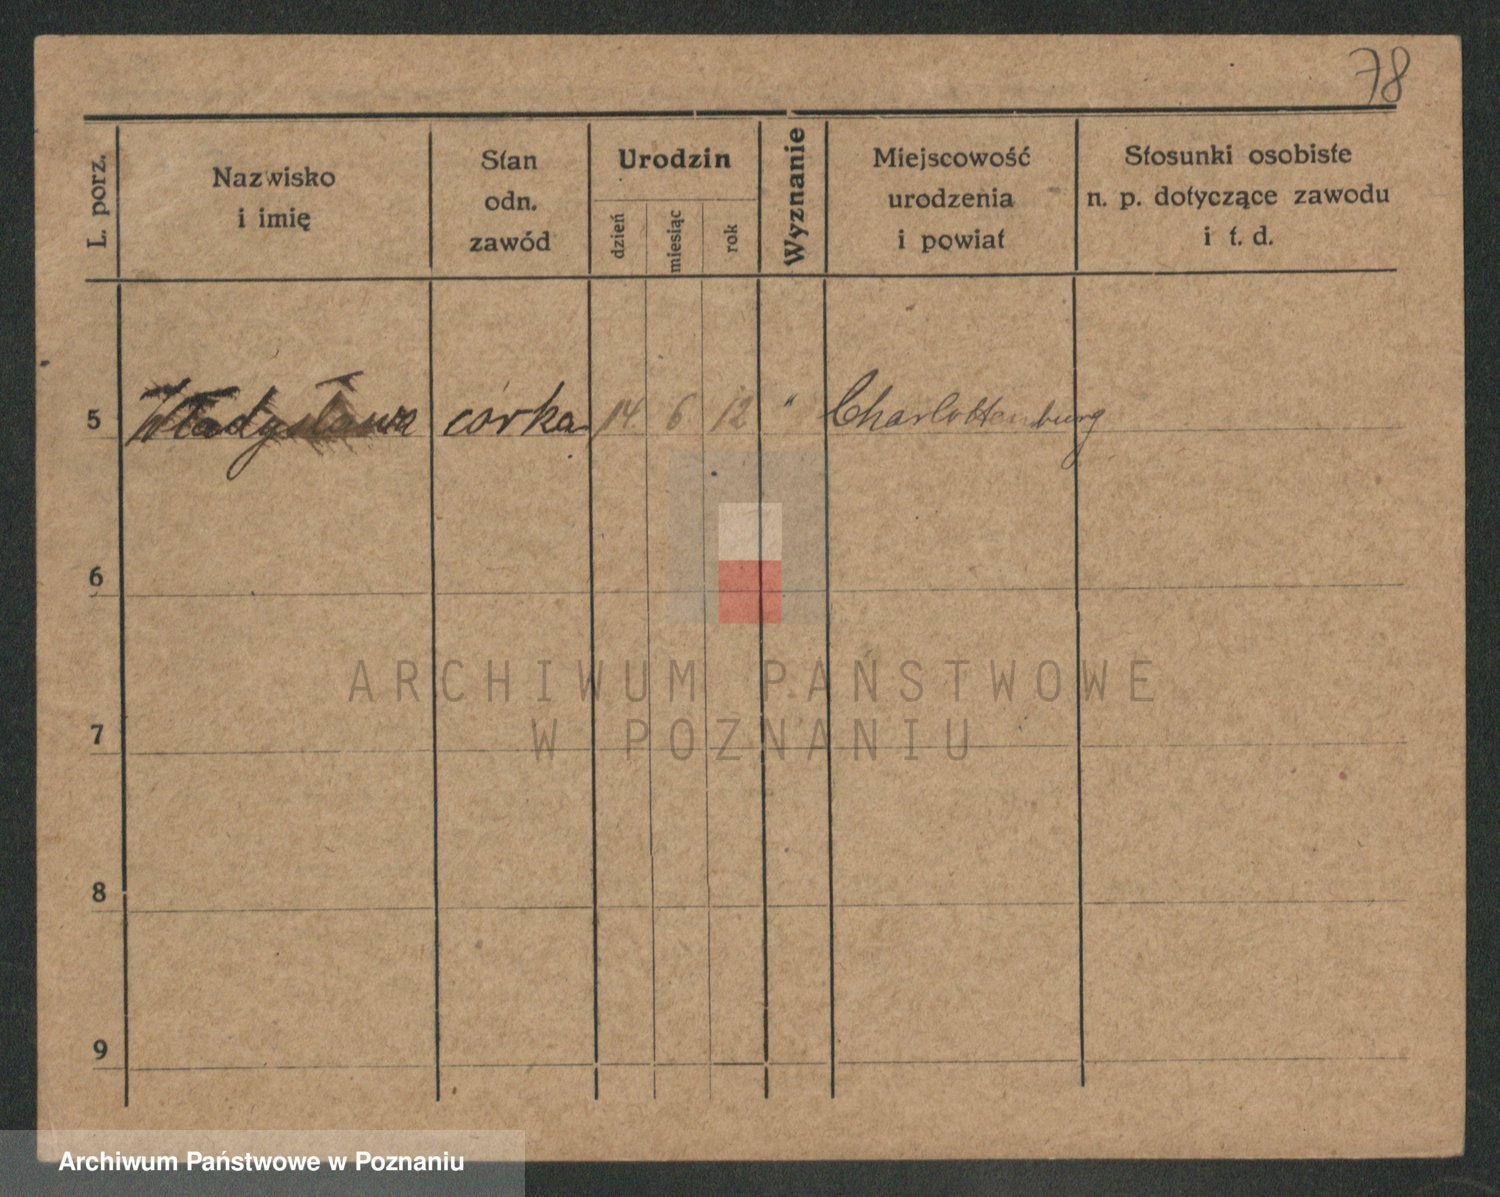 78
L. porz.
Nazwisko
i imię
Stan
odn.
zawód
Urodzin
dzień
miesiąc
rok
Wyznanie
Miejscowość
urodzenia
i powiat
Stosunki osobiste
n. p. dotyczące zawodu
i t. d.
5 Władysława córka 14. 6. 12 " Charlottenburg
6
7
8
9
ARCHIWUM PAŃSTWOWE
W POZNANIU
Archiwum Państwowe w Poznaniu